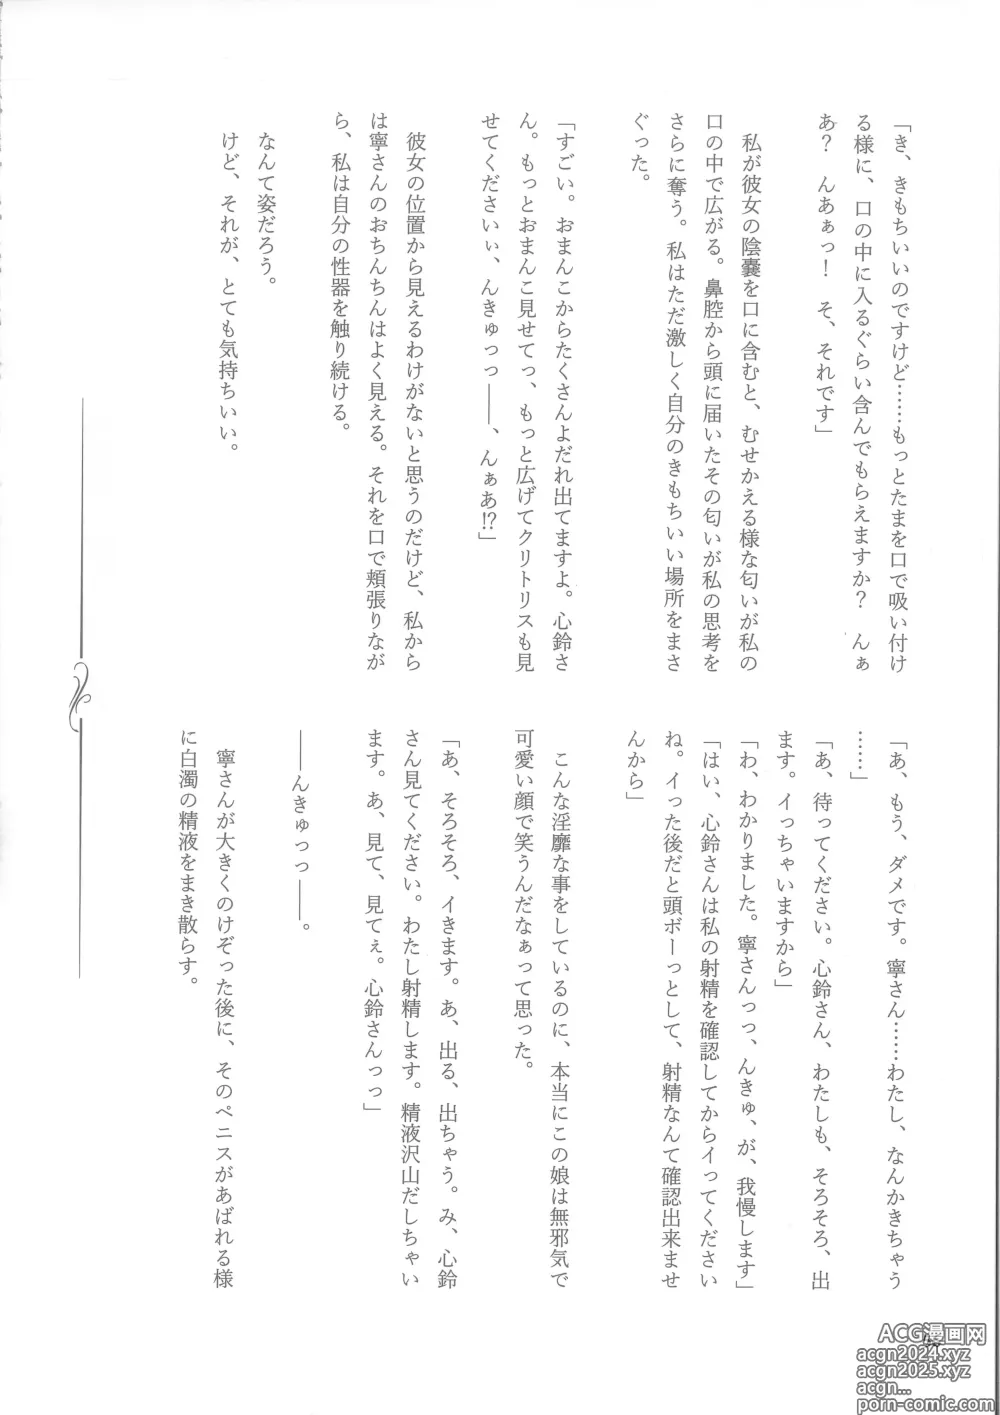 「き、きもちいいのですけど……もっとたまを口で吸い付け
る様に、口の中に入るぐらい含んでもらえますか？　んぁ
あ？　んあぁっ！　そ、それです」
私が彼女の陰嚢を口に含むと、むせかえる様な匂いが私の
口の中で広がる。鼻腔から頭に届いたその匂いが私の思考を
さらに奪う。私はただ激しく自分のきもちいい場所をまさ
ぐった。
「すごい。おまんこからたくさんよだれ出てますよ。心鈴さ
ん。もっとおまんこ見せてっ、もっと広げてクリトリスも見
せてくださいぃ、んきゅっっ――、んぁあ!?」
彼女の位置から見えるわけがないと思うのだけど、私から
は寧さんのおちんちんはよく見える。それを口で頬張りなが
ら、私は自分の性器を触り続ける。
なんて姿だろう。
けど、それが、とても気持ちいい。
「あ、もう、ダメです。寧さん……わたし、なんかきちゃう
……」
「あ、待ってください。心鈴さん、わたしも、そろそろ、出
ます。イっちゃいますから」
「わ、わかりました。寧さんっっ、んきゅ、が、我慢します」
「はい、心鈴さんは私の射精を確認してからイってください
ね。イった後だと頭ボーっとして、射精なんて確認出来ませ
んから」
こんな淫靡な事をしているのに、本当にこの娘は無邪気で
可愛い顔で笑うんだなぁって思った。
「あ、そろそろ、イきます。あ、出る、出ちゃう。み、心鈴
さん見てください。わたし射精します。精液沢山だしちゃい
ます。あ、見て、見てぇ。心鈴さんっっ」
――んきゅっっ――。
寧さんが大きくのけぞった後に、そのペニスがあばれる様
に白濁の精液をまき散らす。
ACG漫画网
acgn2024.xyz
acgn2025.xyz
acgn...
porn-comic.com